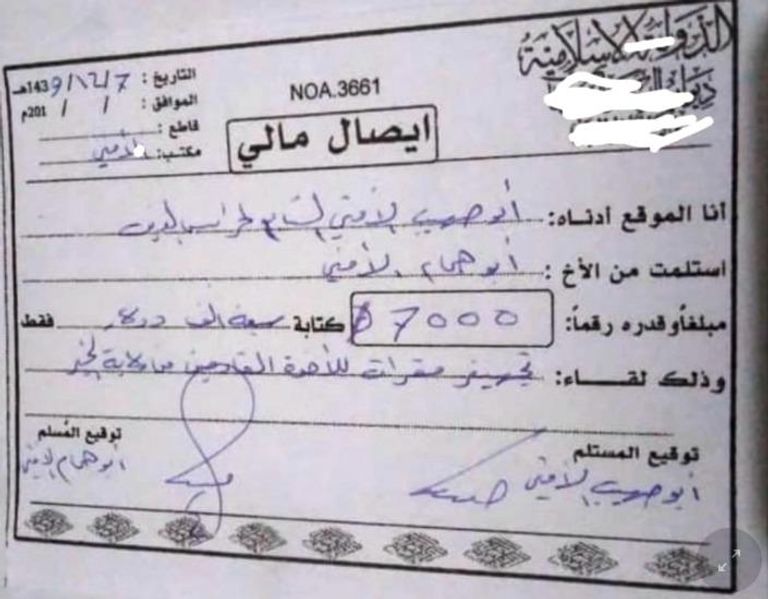 الدولة الإسلامية
ديوان
التاريخ : 1439/12/7هـ
الموافق : / / 201م
قاطع :
مكتب: الأمني
NOA.3661
ايصال مالي
أنا الموقع أدناه: أبو صهيب الأمني
استلمت من الأخ : أبو همام الأمني
مبلغاً وقدره رقماً: 7000$ كتابة سبعة الف دولار فقط
وذلك لقـــاء: تجهيز مقرات للأخوة القادمين من ولاية الخير
توقيع المستلم توقيع المُسلم
أبو صهيب الأمني أبو همام الأمني